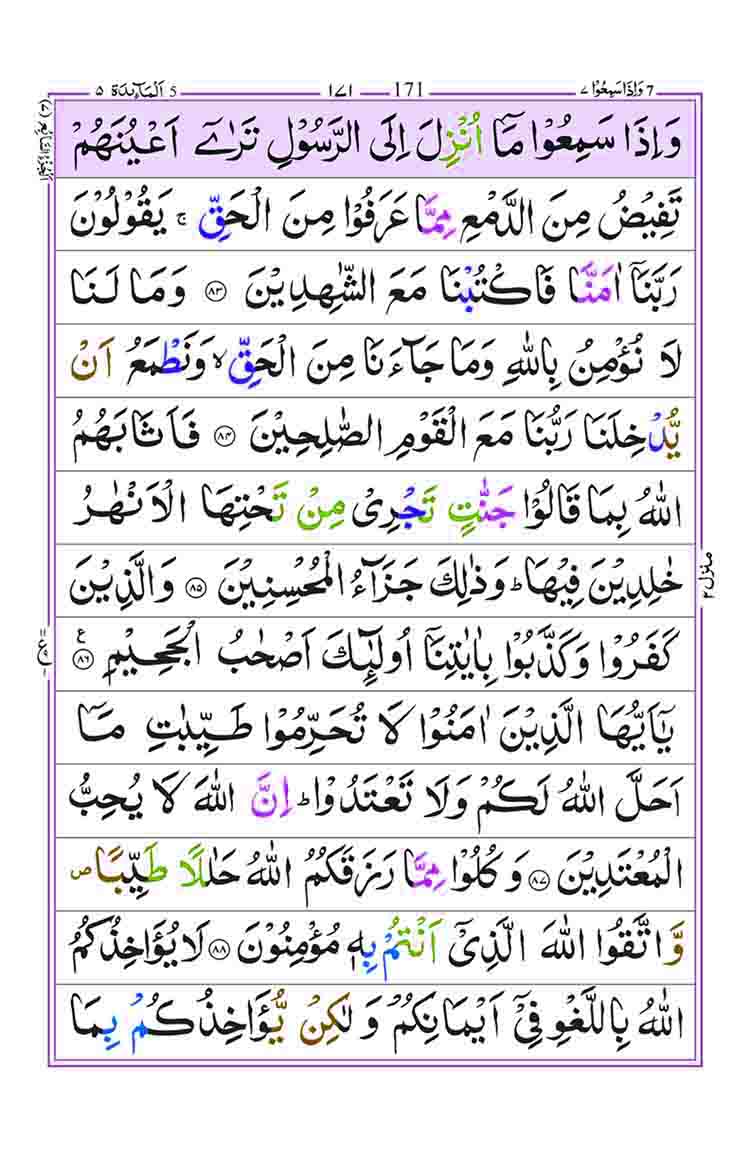 ٥ اَلْمَآئِدَة 5 ١٧١ 171 وَاِذَا سَمِعُوْا ٧ 7
وَاِذَا سَمِعُوْا مَاۤ اُنْزِلَ اِلَى الرَّسُوْلِ تَرٰۤى اَعْيُنَهُمْ
تَفِيْضُ مِنَ الدَّمْعِ مِمَّا عَرَفُوْا مِنَ الْحَقِّ ۚ يَقُوْلُوْنَ
رَبَّنَاۤ اٰمَنَّا فَاكْتُبْنَا مَعَ الشّٰهِدِيْنَ ﴿٨٣﴾ وَمَا لَنَا
لَا نُؤْمِنُ بِاللّٰهِ وَمَا جَآءَنَا مِنَ الْحَقِّ ۙ وَنَطْمَعُ اَنْ
يُّدْخِلَنَا رَبُّنَا مَعَ الْقَوْمِ الصّٰلِحِيْنَ ﴿٨٤﴾ فَاَثَابَهُمُ
اللّٰهُ بِمَا قَالُوْا جَنّٰتٍ تَجْرِىْ مِنْ تَحْتِهَا الْاَنْهٰرُ
خٰلِدِيْنَ فِيْهَا ؕ وَذٰلِكَ جَزَآءُ الْمُحْسِنِيْنَ ﴿٨٥﴾ وَالَّذِيْنَ
كَفَرُوْا وَكَذَّبُوْا بِاٰيٰتِنَاۤ اُولٰٓئِكَ اَصْحٰبُ الْجَحِيْمِ ﴿٨٦﴾ ع
يٰۤاَيُّهَا الَّذِيْنَ اٰمَنُوْا لَا تُحَرِّمُوْا طَيِّبٰتِ مَاۤ
اَحَلَّ اللّٰهُ لَكُمْ وَلَا تَعْتَدُوْا ؕ اِنَّ اللّٰهَ لَا يُحِبُّ
الْمُعْتَدِيْنَ ﴿٨٧﴾ وَكُلُوْا مِمَّا رَزَقَكُمُ اللّٰهُ حَلٰلًا طَيِّبًا ص
وَّاتَّقُوا اللّٰهَ الَّذِىْۤ اَنْتُمْ بِهٖ مُؤْمِنُوْنَ ﴿٨٨﴾ لَا يُؤَاخِذُكُمُ
اللّٰهُ بِاللَّغْوِ فِىْۤ اَيْمَانِكُمْ وَلٰكِنْ يُّؤَاخِذُكُمْ بِمَا
منزل ٢
ع